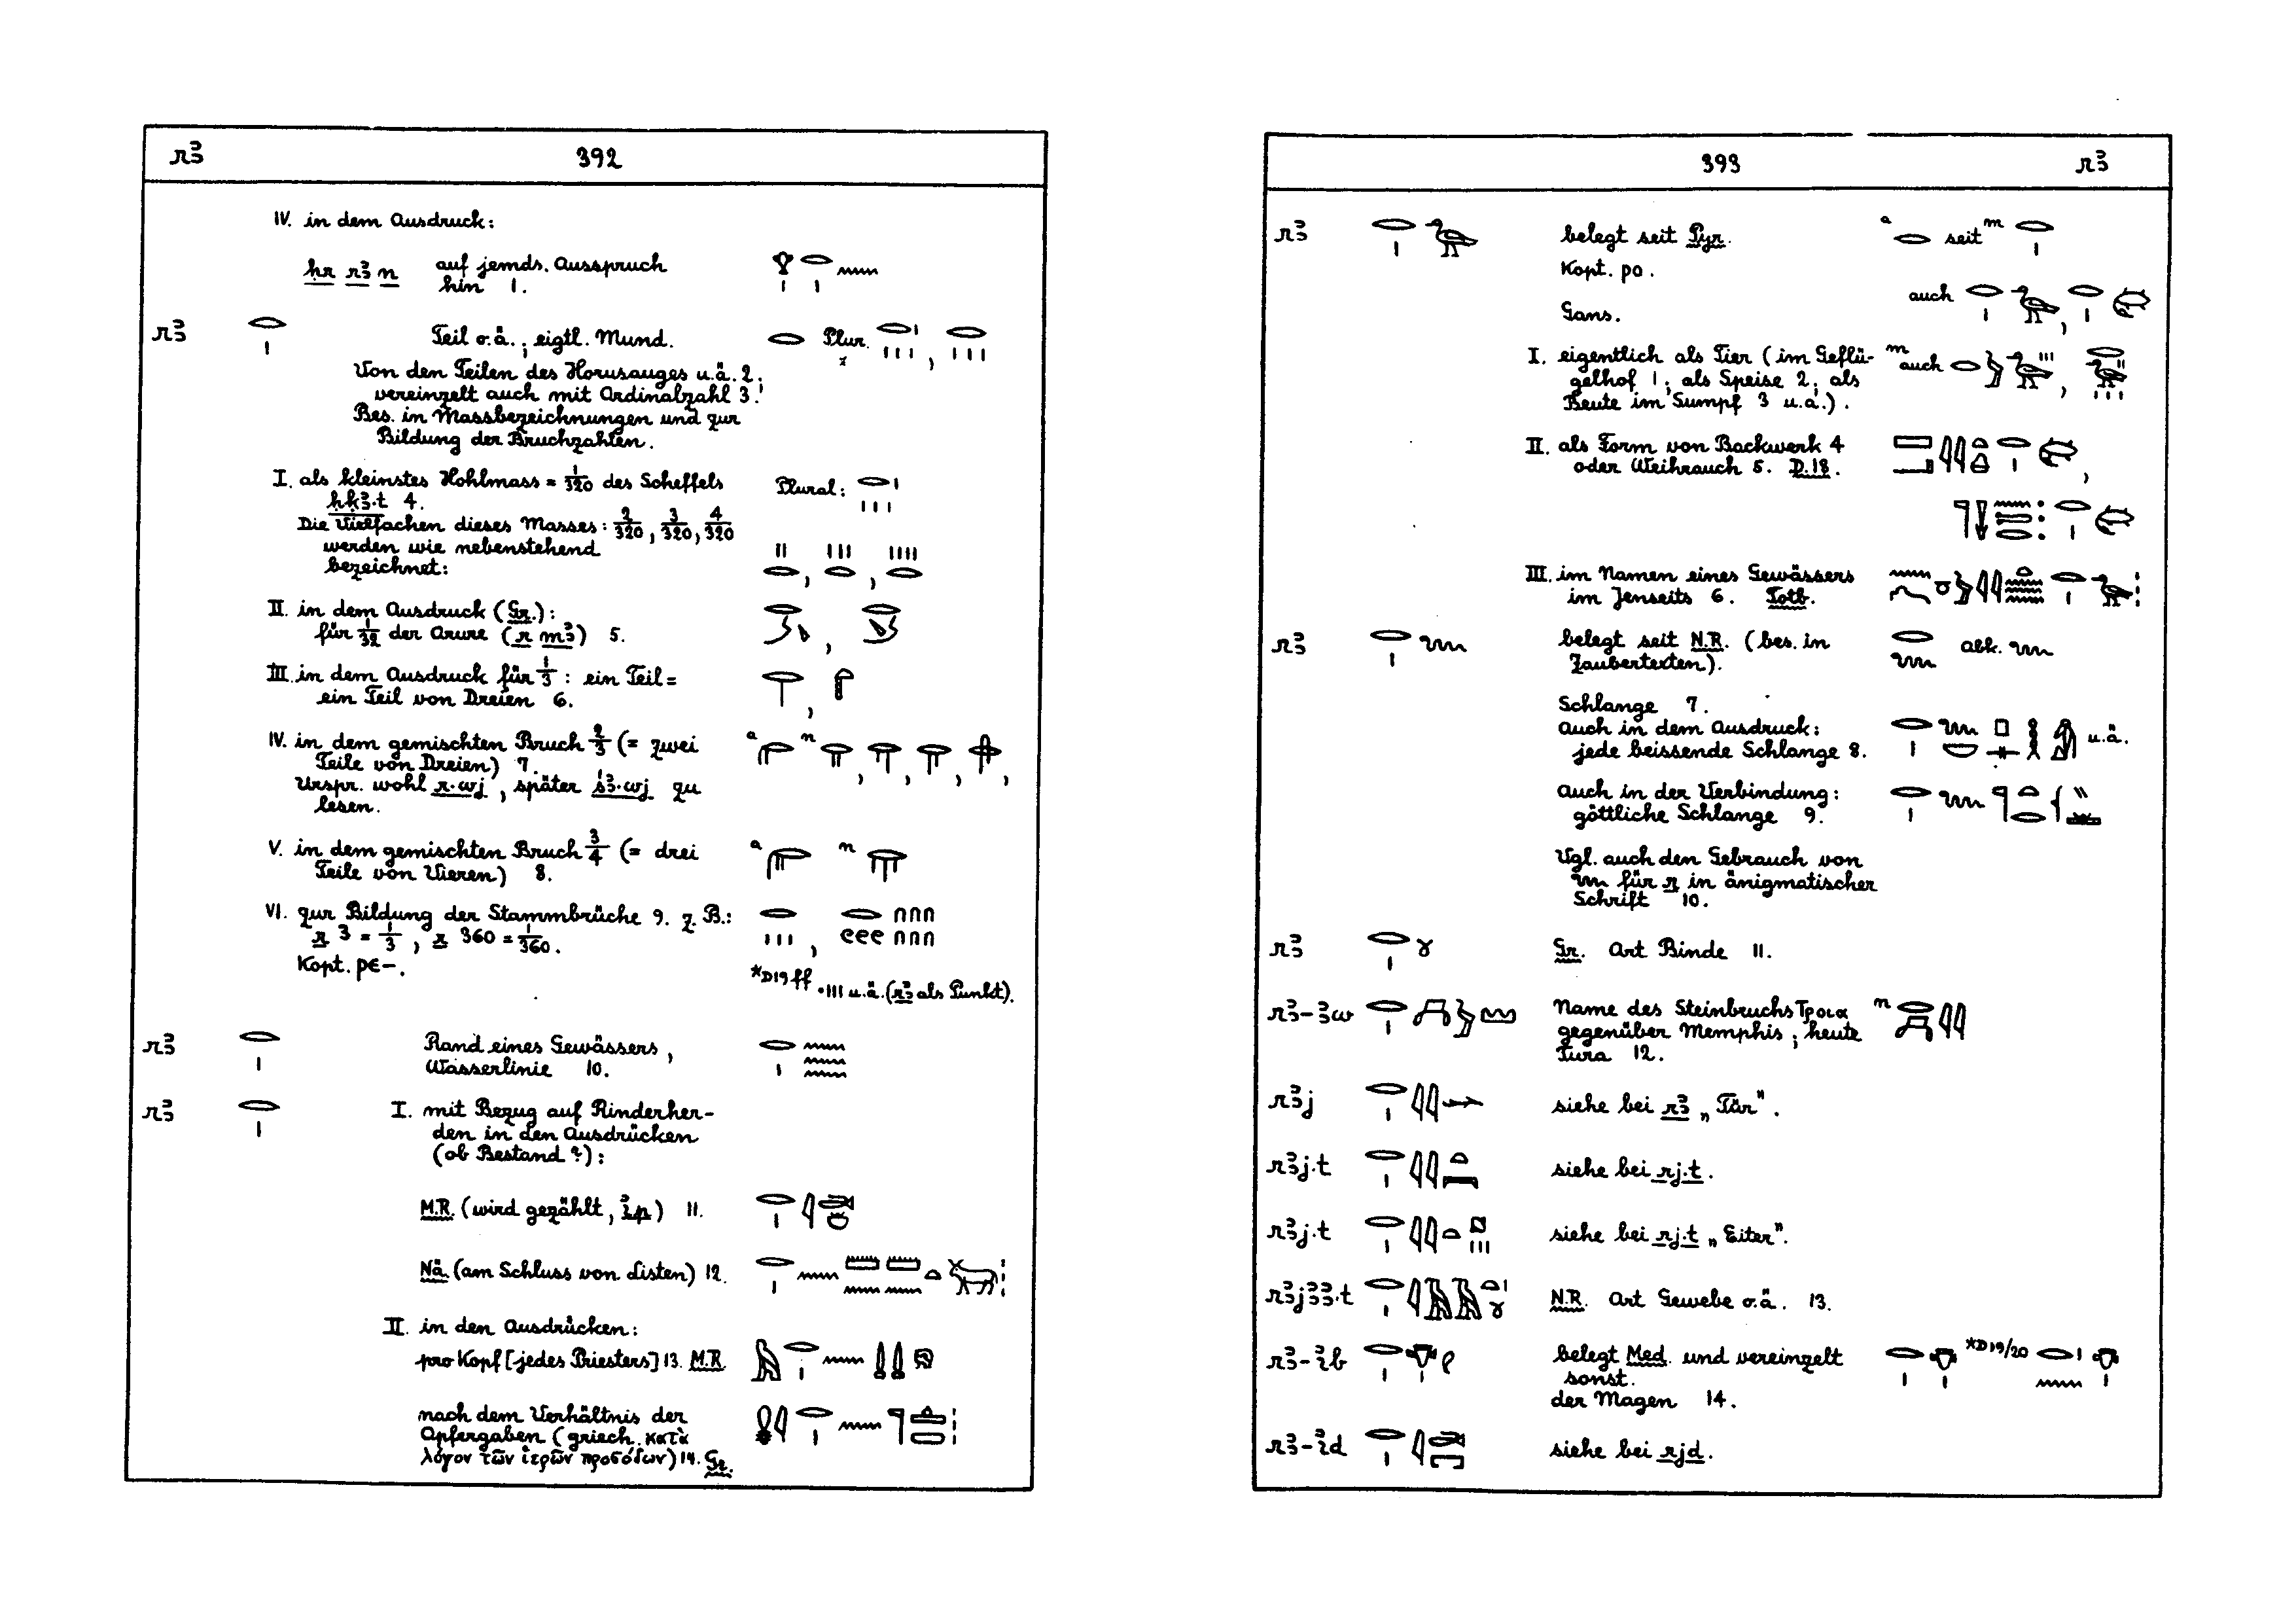 rꜣ 392
IV. in dem Ausdruck:
ḥr rꜣ n auf jemds. Ausspruch
hin 1.
rꜣ 𓂋𓏤 Teil o.ä.; eigtl. Mund. 𓂋 Plur. 𓂋𓏤𓏥, 𓂋𓏥
Von den Teilen des Horusauges u.ä. 2;
vereinzelt auch mit Ordinalzahl 3.
Bes. in Massbezeichnungen und zur
Bildung der Bruchzahlen.
I. als kleinstes Hohlmass = 1/320 des Scheffels Plural: 𓂋𓏤𓏥
ḥḳꜣ.t 4.
Die Vielfachen dieses Masses: 2/320, 3/320, 4/320
werden wie nebenstehend
bezeichnet:
II. in dem Ausdruck (Gr.):
für 1/32 der Arure (r mꜣ) 5.
III. in dem Ausdruck für 1/3: ein Teil =
ein Teil von Dreien 6.
IV. in dem gemischten Bruch 2/3 (= zwei a n
Teile von Dreien) 7.
Urspr. wohl r.wj, später šꜣ.wj zu
lesen.
V. in dem gemischten Bruch 3/4 (= drei a n
Teile von Vieren) 8.
VI. zur Bildung der Stammbrüche 9. z. B.:
r 3 = 1/3, r 360 = 1/360.
Kopt. ⲣⲉ-. *D19 ff •III u.ä. (rꜣ als Punkt).
rꜣ 𓂋𓏤 Rand eines Gewässers, 𓂋𓏤𓈗
Wasserlinie 10.
rꜣ 𓂋𓏤 I. mit Bezug auf Rinderher-
den in den Ausdrücken
(ob Bestand?):
M.R. (wird gezählt, ı͗p) 11.
Nä. (am Schluss von Listen) 12.
II. in den Ausdrücken:
pro Kopf [jedes Priesters] 13. M.R.
nach dem Verhältnis der
Opfergaben (griech. κατὰ
λόγον τῶν ἱερῶν προσόδων) 14. Gr.
393 rꜣ
rꜣ 𓂋𓏤𓅬 belegt seit Pyr. a 𓂋 seit m 𓂋𓏤
Kopt. ⲣⲟ.
auch
Gans.
I. eigentlich als Tier (im Geflü- m auch
gelhof 1; als Speise 2; als
Beute im Sumpf 3 u.ä.).
II. als Form von Backwerk 4
oder Weihrauch 5. D.18.
III. im Namen eines Gewässers
im Jenseits 6. Totb.
rꜣ 𓂋𓏤𓆙 belegt seit N.R. (bes. in 𓂋𓆙 abk. 𓆙
Zaubertexten).
Schlange 7.
auch in dem Ausdruck:
jede beissende Schlange 8. u.ä.
auch in der Verbindung:
göttliche Schlange 9.
Vgl. auch den Gebrauch von
𓆙 für r in änigmatischer
Schrift 10.
rꜣ 𓂋𓏤𓍢 Gr. Art Binde 11.
rꜣ-ꜣw Name des Steinbruchs Τροια n
gegenüber Memphis; heute
Tura 12.
rꜣj siehe bei rꜣ „Tür".
rꜣj.t siehe bei rj.t.
rꜣj.t siehe bei rj.t „Eiter".
rꜣjꜣꜣ.t N.R. Art Gewebe o.ä. 13.
rꜣ-ı͗b belegt Med. und vereinzelt *D19/20
sonst.
der Magen 14.
rꜣ-ı͗d siehe bei rjd.